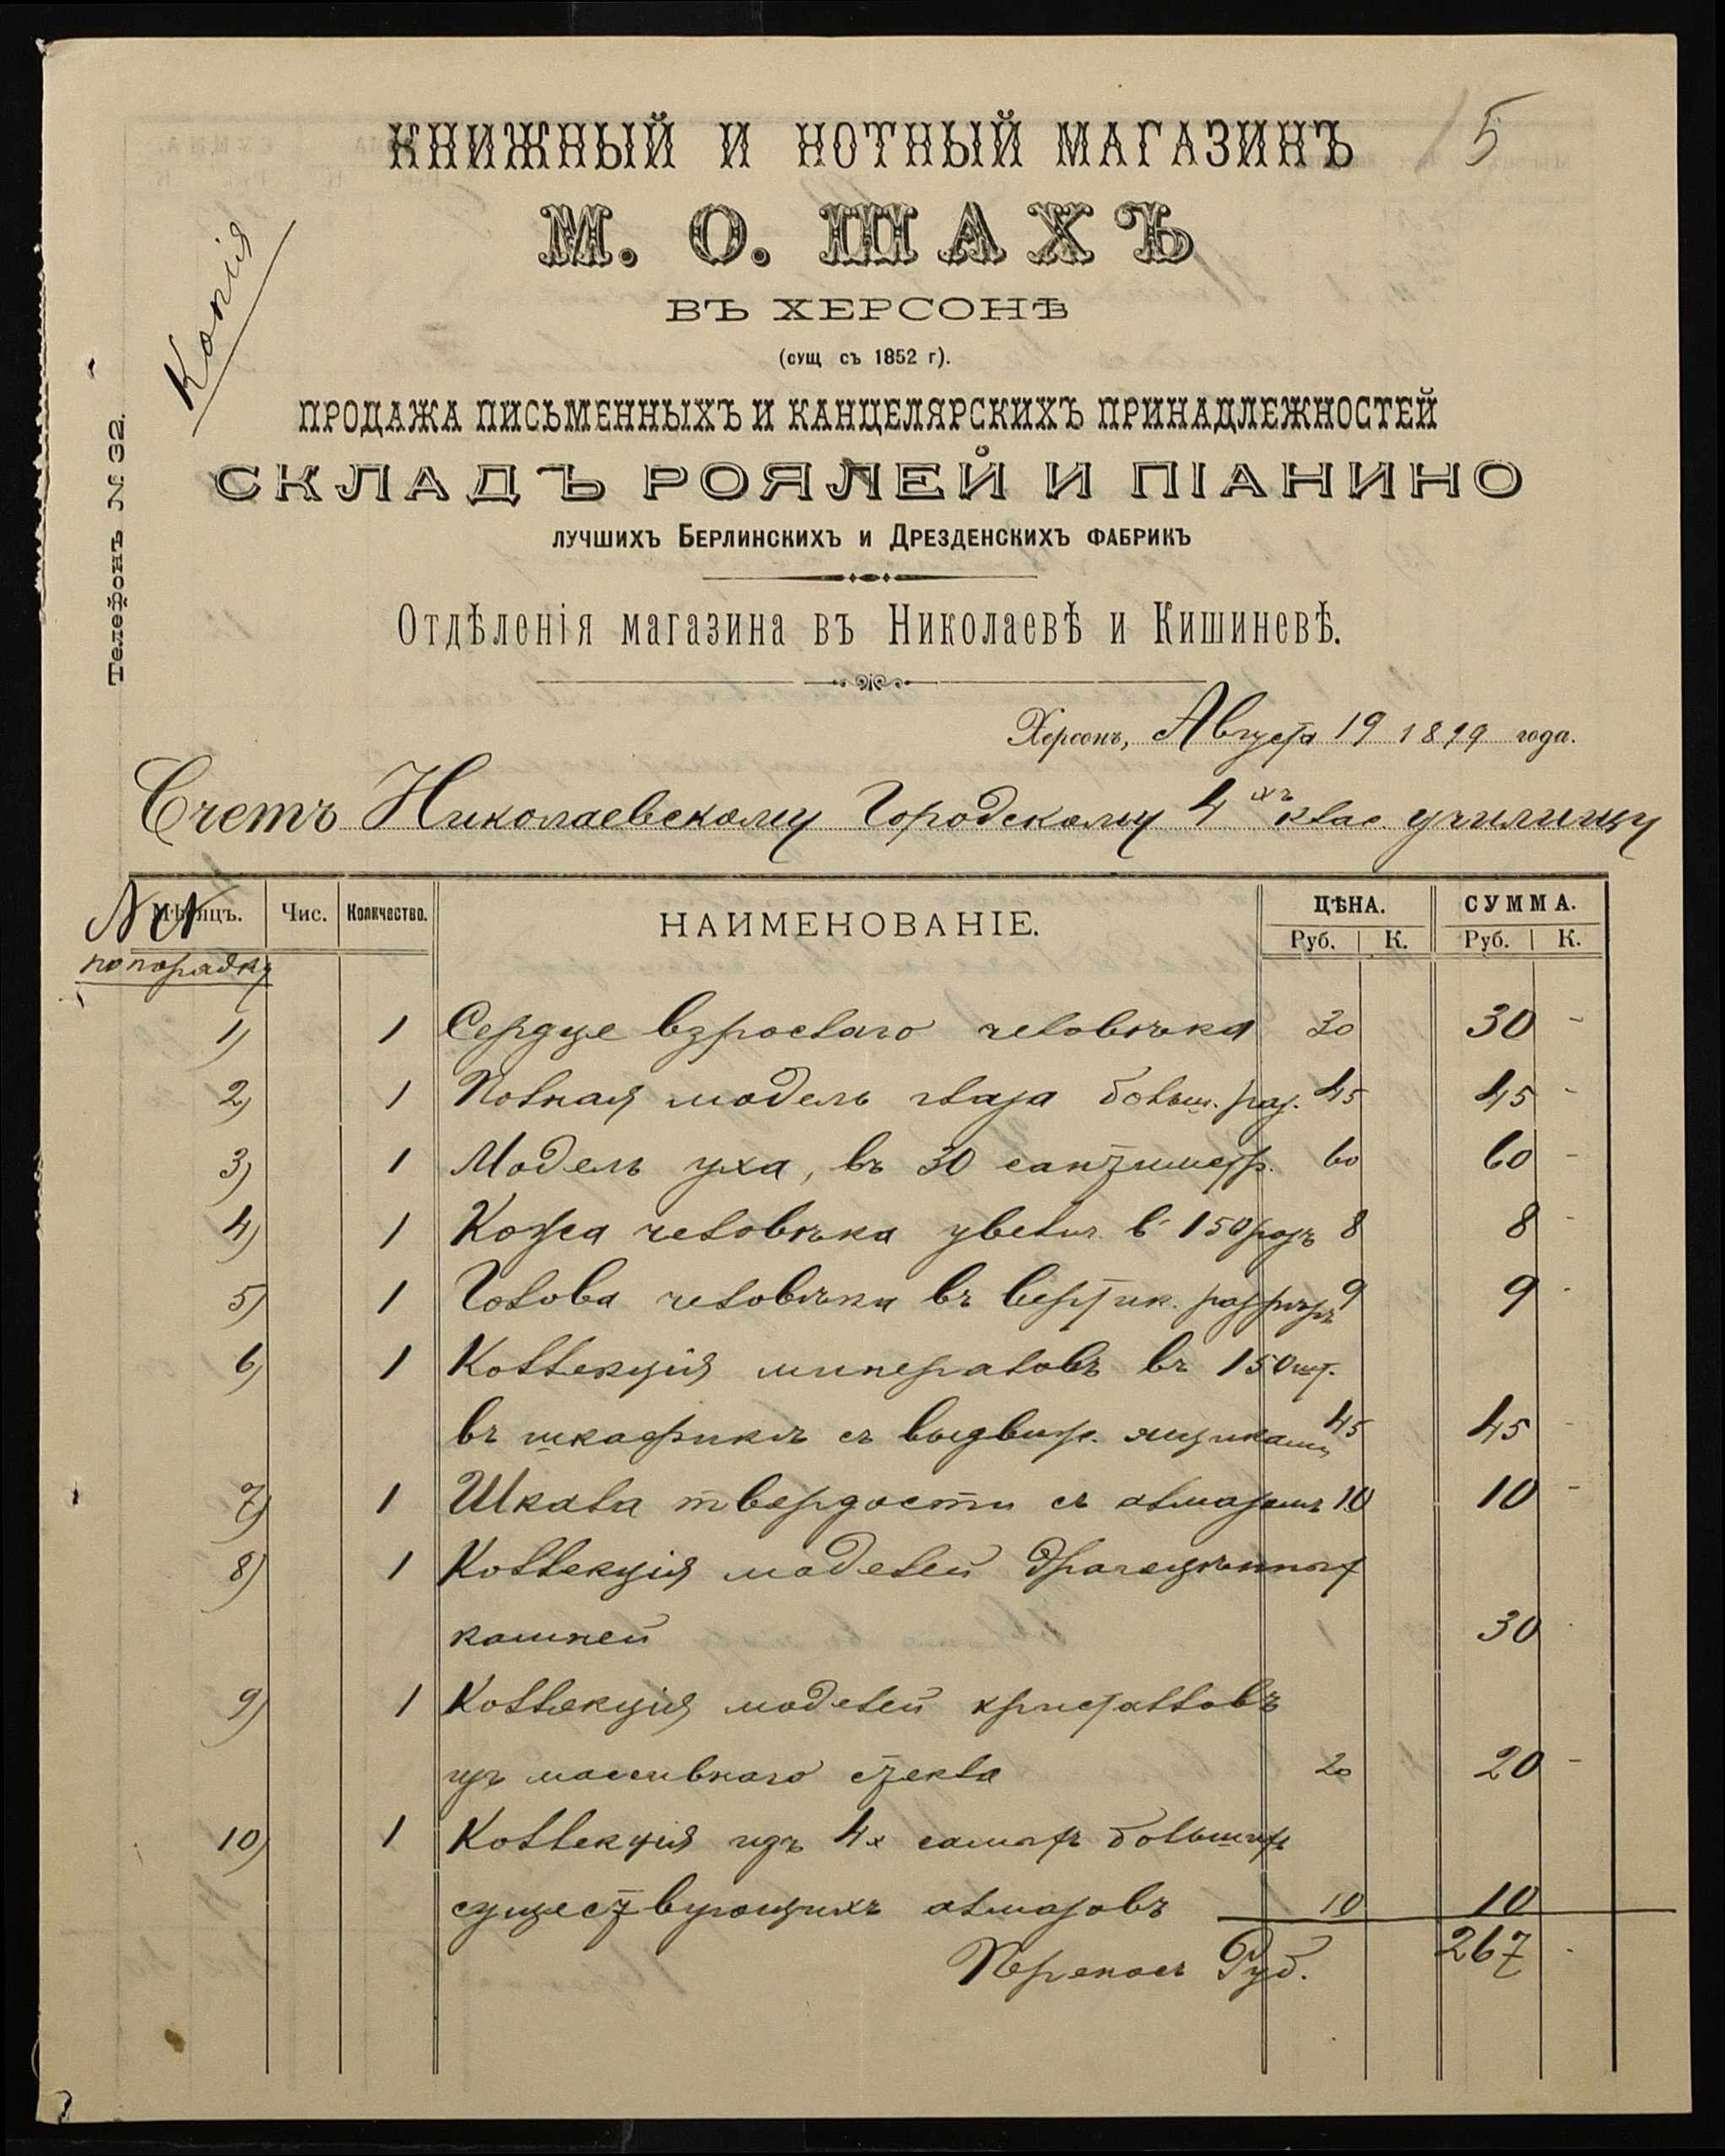 КНИЖНЫЙ И НОТНЫЙ МАГАЗИНЪ
15
М. О. ШАХЪ
ВЪ ХЕРСОНѢ
(сущ съ 1852 г).
Копія
ПРОДАЖА ПИСЬМЕННЫХЪ И КАНЦЕЛЯРСКИХЪ ПРИНАДЛЕЖНОСТЕЙ
СКЛАДЪ РОЯЛЕЙ И ПІАНИНО
ЛУЧШИХЪ БЕРЛИНСКИХЪ И ДРЕЗДЕНСКИХЪ ФАБРИКЪ
Телефонъ № 32.
Отдѣленія магазина въ Николаевѣ и Кишиневѣ.
Херсонъ, Августа 19 1899 года.
Счетъ Николаевскому Городскому 4хъ клас. училищу
Мѣсяцъ. Чис. Количество. НАИМЕНОВАНІЕ. ЦѢНА. СУММА.
Руб. К. Руб. К.
NN
по порядку
1) 1 Сердце взрослаго человѣка 30 30 -
2) 1 Полная модель глаза больш. раз. 45 45 -
3) 1 Модель уха, въ 30 сантиметр. 60 60 -
4) 1 Кожа человѣка увелич. в 150 разъ 8 8 -
5) 1 Голова человѣка въ вертик. разрѣзѣ 9 9 -
6) 1 Коллекція минераловъ въ 150 шт.
въ шкафикѣ съ выдвиж. ящиками 45 45 -
7) 1 Шкала твердости съ алмазомъ 10 10 -
8) 1 Коллекція моделей драгоцѣнных
камней 30 -
9) 1 Коллекція моделей кристалловъ
изъ массивнаго стекла 20 20 -
10) 1 Коллекція изъ 4х самыхъ большихъ
существующихъ алмазовъ 10 10
Переносъ Руб. 267 -